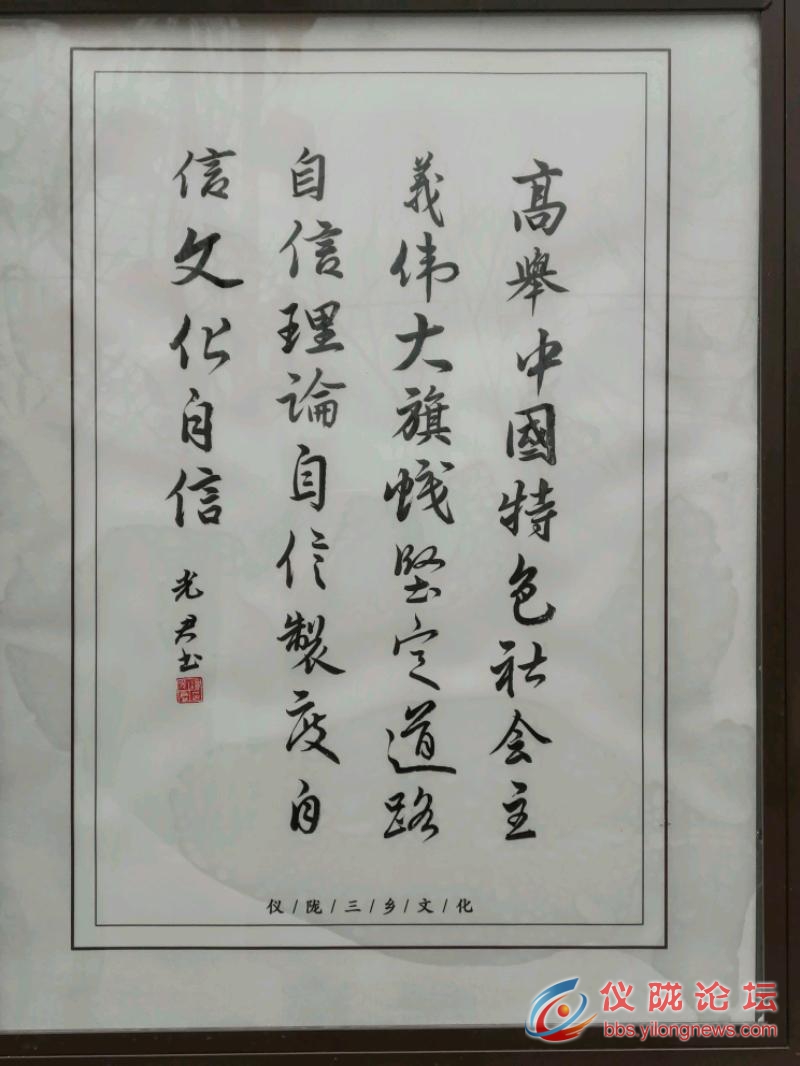 高舉中國特色社会主
義伟大旗幟堅定道路
自信理論自信製度自
信文化自信
光君书
仪/陇/三/乡/文/化
仪陇论坛
bbs.yilongnews.com